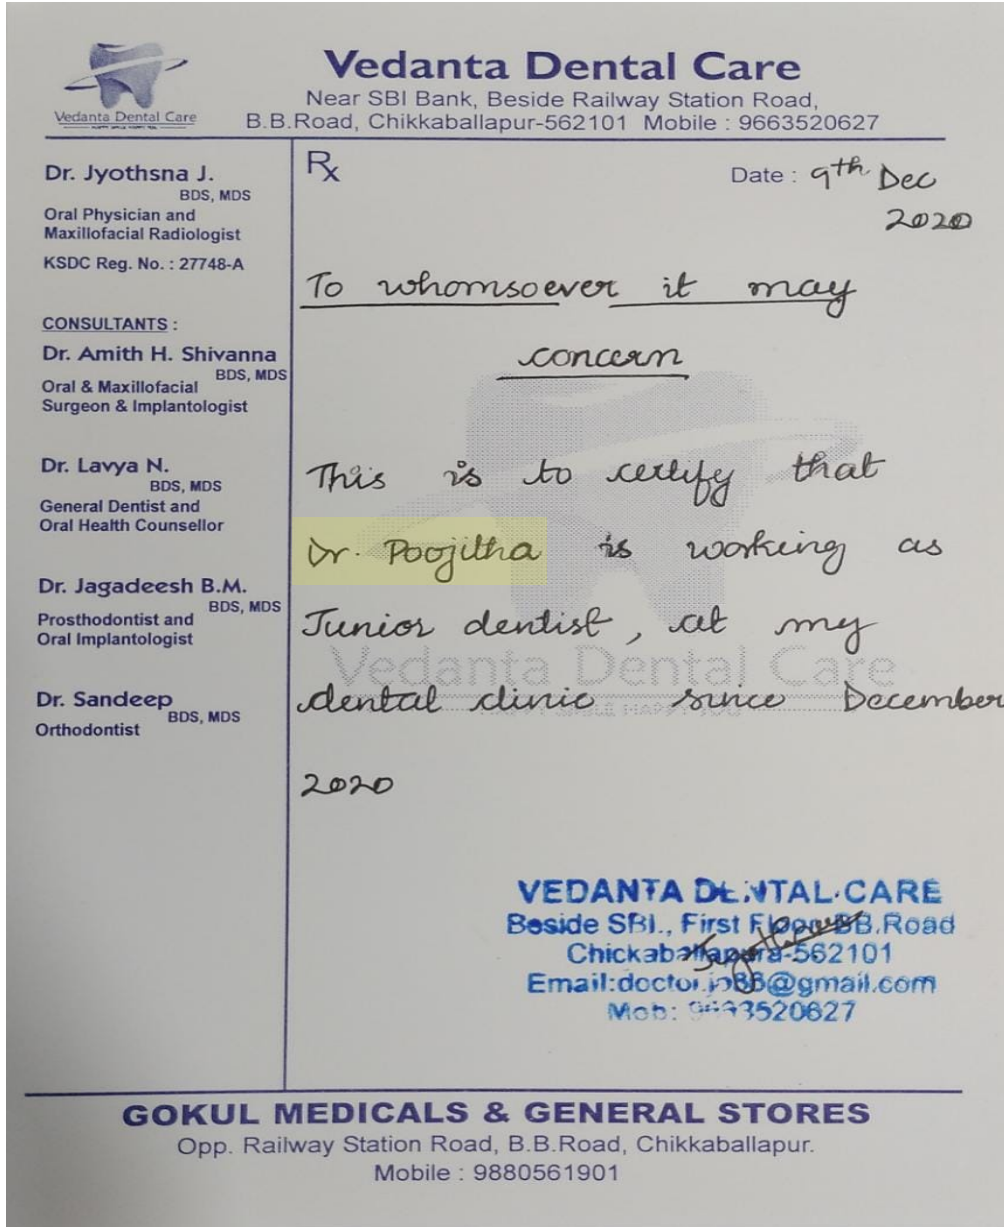 Vedanta Dental Care
Near SBI Bank, Beside Railway Station Road,
B.B.Road, Chikkaballapur-562101 Mobile : 9663520627
Vedanta Dental Care
Dr. Jyothsna J.
BDS, MDS
Oral Physician and
Maxillofacial Radiologist
KSDC Reg. No. : 27748-A
CONSULTANTS :
Dr. Amith H. Shivanna
BDS, MDS
Oral & Maxillofacial
Surgeon & Implantologist
Dr. Lavya N.
BDS, MDS
General Dentist and
Oral Health Counsellor
Dr. Jagadeesh B.M.
BDS, MDS
Prosthodontist and
Oral Implantologist
Dr. Sandeep
BDS, MDS
Orthodontist
Rx
Date : 9th Dec
2020
To whomsoever it may
concern
This is to certify that
Dr. Poojitha is working as
Junior dentist, at my
Vedanta Dental Care
dental clinic since December
2020
VEDANTA DENTAL CARE
Beside SBI., First Floor BB.Road
Chickaballapura-562101
@gmail.com
Mob:
GOKUL MEDICALS & GENERAL STORES
Opp. Railway Station Road, B.B.Road, Chikkaballapur.
Mobile : 9880561901